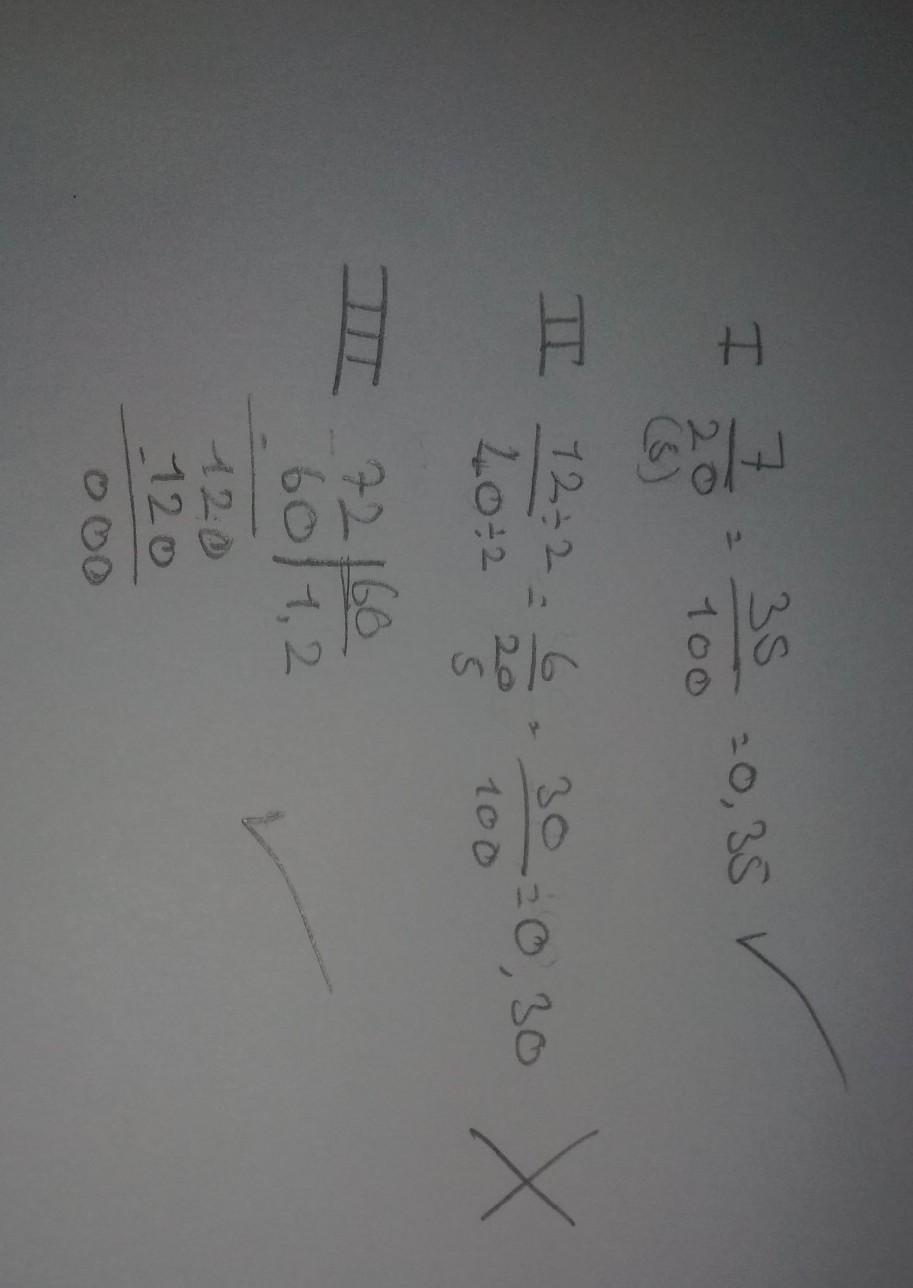 I 7/20 (5) = 35/100 = 0,35 ✓
II 12÷2/40÷2 = 6/20 5 = 30/100 = 0,30 X
III 72 | 60
- 60 | 1,2
120
- 120
000 ✓